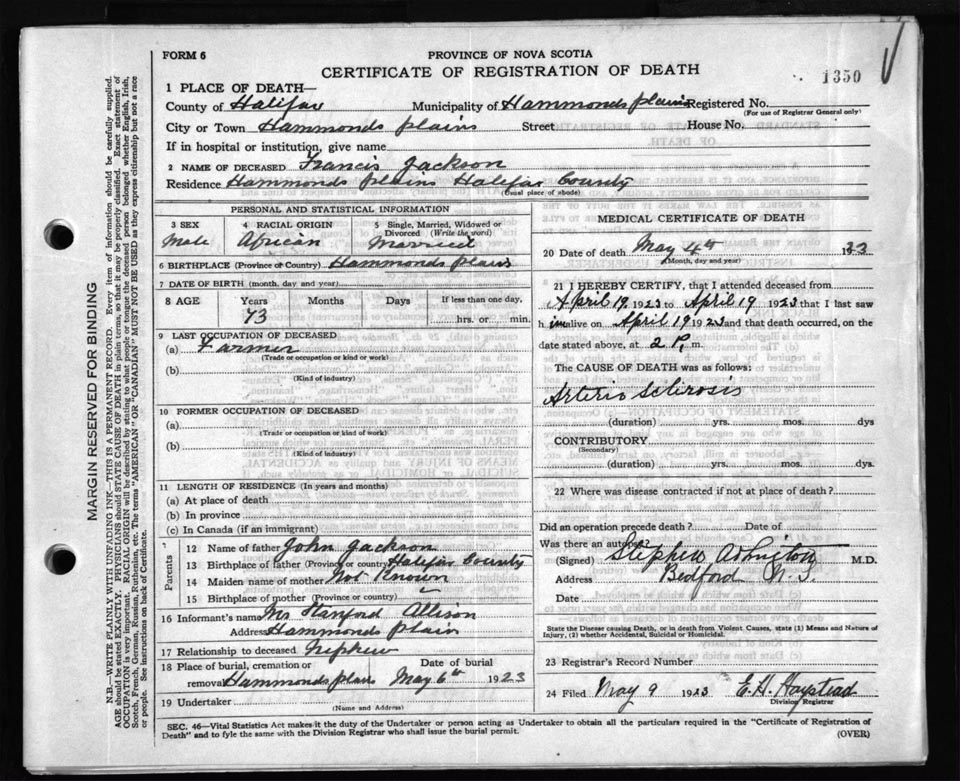 FORM 6
PROVINCE OF NOVA SCOTIA
CERTIFICATE OF REGISTRATION OF DEATH
1350
1 PLACE OF DEATH—
County of Halifax Municipality of Hammonds plains Registered No.
(For use of Registrar General only)
City or Town Hammonds plains Street House No.
If in hospital or institution, give name
2 NAME OF DECEASED Francis Jackson
Residence Hammonds plains Halifax County
(Usual place of abode)
PERSONAL AND STATISTICAL INFORMATION
3 SEX 4 RACIAL ORIGIN 5 Single, Married, Widowed or
Divorced (Write the word)
Male African Married
6 BIRTHPLACE (Province or Country) Hammonds plains
7 DATE OF BIRTH (month, day and year)
8 AGE Years Months Days If less than one day,
73 hrs. or min.
9 LAST OCCUPATION OF DECEASED
(a) Farmer
(Trade or occupation or kind of work)
(b)
(Kind of industry)
10 FORMER OCCUPATION OF DECEASED
(a)
(Trade or occupation or kind of work)
(b)
(Kind of industry)
11 LENGTH OF RESIDENCE (In years and months)
(a) At place of death
(b) In province
(c) In Canada (if an immigrant)
Parents
12 Name of father John Jackson
13 Birthplace of father (Province or Country) Halifax County
14 Maiden name of mother Not Known
15 Birthplace of mother (Province or Country)
16 Informant's name Mr Stanford Allison
Address Hammonds Plain
17 Relationship to deceased Nephew
18 Place of burial, cremation or Date of burial
removal Hammonds plains May 6th 1923
19 Undertaker
(Name and Address)
MEDICAL CERTIFICATE OF DEATH
20 Date of death May 4th 23
(Month, day and year)
21 I HEREBY CERTIFY, that I attended deceased from
April 19 1923 to April 19 1923 that I last saw
h im alive on April 19 1923 and that death occurred, on the
date stated above, at 2 P. m.
The CAUSE OF DEATH was as follows:
Arterio Sclerosis
(duration) yrs. mos. dys
CONTRIBUTORY
(Secondary)
(duration) yrs. mos. dys.
22 Where was disease contracted if not at place of death?
Did an operation precede death? Date of
Was there an autopsy?
(Signed) Stephen M.D.
Address Bedford N.S.
Date
State the Disease causing Death, or in death from Violent Causes, state (1) Means and Nature of
Injury, (2) whether Accidental, Suicidal or Homicidal.
23 Registrar's Record Number
24 Filed May 9 1923 E. H. Haystead
Division Registrar
SEC. 46—Vital Statistics Act makes it the duty of the Undertaker or person acting as Undertaker to obtain all the particulars required in the "Certificate of Registration of
Death" and to fyle the same with the Division Registrar who shall issue the burial permit.
(OVER)
MARGIN RESERVED FOR BINDING
N.B.—WRITE PLAINLY WITH UNFADING INK—THIS IS A PERMANENT RECORD. Every item of information should be carefully supplied.
AGE should be stated EXACTLY. PHYSICIANS should STATE CAUSE OF DEATH in plain terms, so that it may be properly classified. Exact statement of
OCCUPATION is very important. RACIAL ORIGIN will be described by stating to what people or tongue the deceased person belonged whether English, Irish,
Scotch, French, German, Russian, Ruthenian, etc. The terms "AMERICAN" or "CANADIAN" MUST NOT BE USED as they express citizenship but not a race
or people. See instructions on back of Certificate.